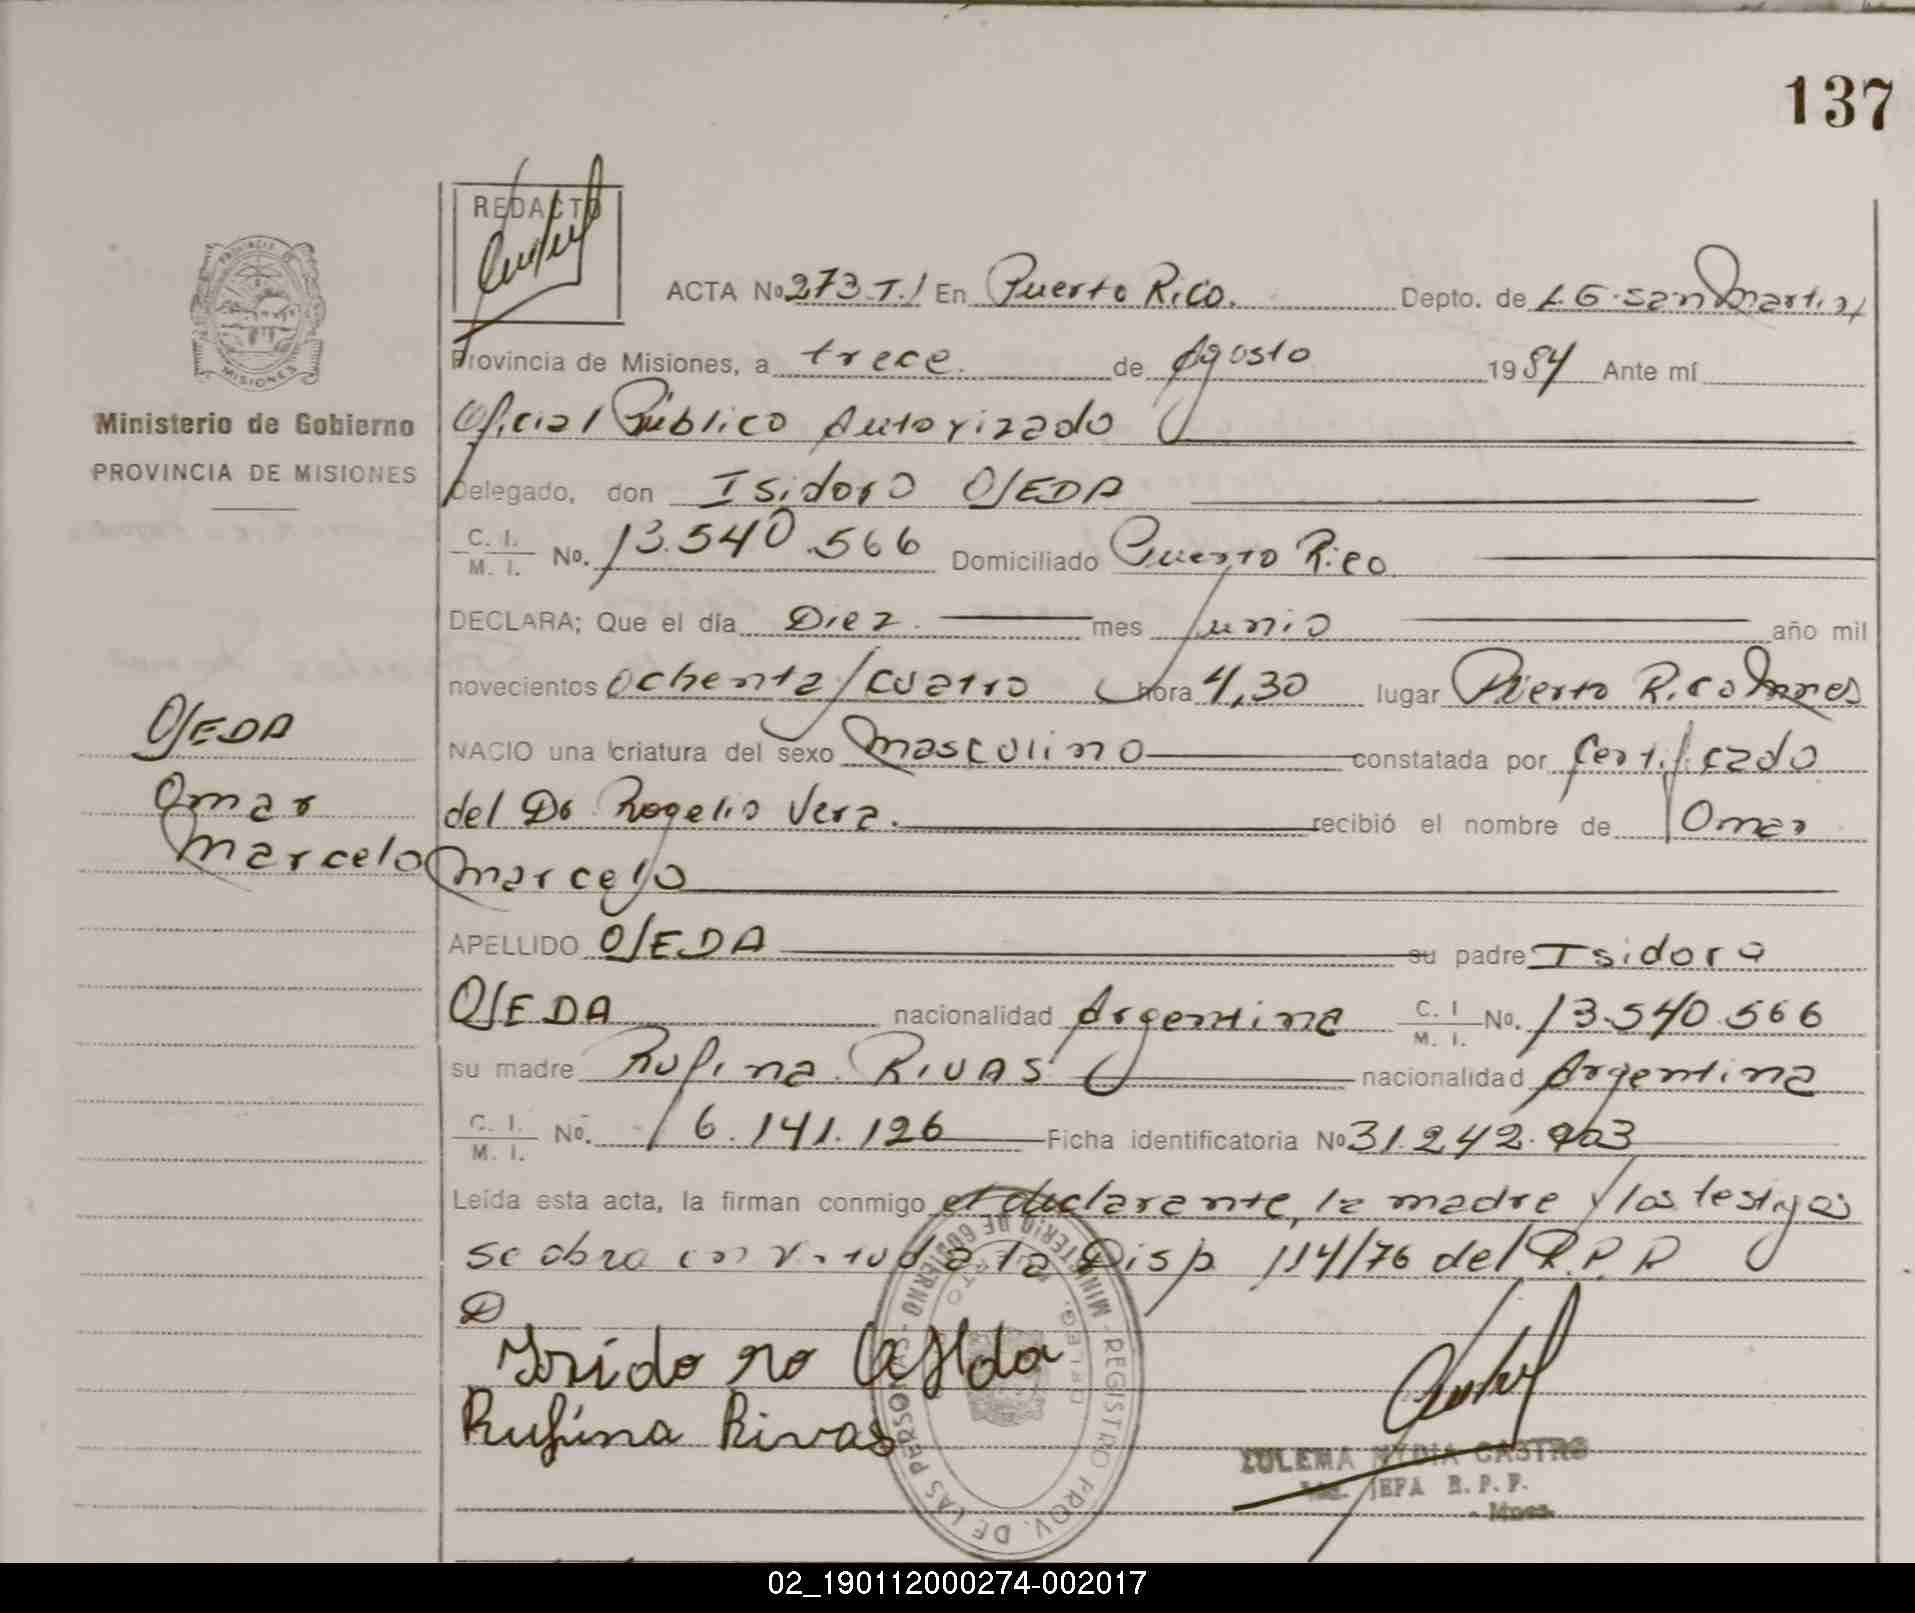 137
REDACTO
ACTA No 273 T.I En Puerto Rico. Depto. de L.G. San Martin
Provincia de Misiones, a trece. de Agosto 1984 Ante mí
Ministerio de Gobierno
PROVINCIA DE MISIONES
Oficial Público Autorizado
Delegado, don Isidoro OJEDA
C. I. / M. I. No. 13.540.566 Domiciliado Puerto Rico
DECLARA; Que el día Diez. mes Junio año mil
novecientos ochenta y cuatro hora 4,30 lugar Puerto Rico Mnes
NACIO una criatura del sexo masculino constatada por Certificado
del Dr Rogelio Vera. recibió el nombre de Omar
Marcelo
OJEDA
Omar
Marcelo
APELLIDO OJEDA su padre Isidoro
OJEDA nacionalidad Argentina C. I / M. I. No. 13.540.566
su madre Rufina RIVAS nacionalidad Argentina
C. I. / M. I. No. 16.141.126 Ficha identificatoria No 31.242.903
Leída esta acta, la firman conmigo el declarante, la madre y los testigos
se obra en virtud a la Disp 114/76 del R.P.P
Isido ro Ojeda
Rufina Rivas
REGISTRO PROV. DE LAS PERSONAS - MINISTERIO DE GOBIERNO
ZULEMA NYDIA CASTRO
JEFA R. P. P.
- Mnes-
02_190112000274-002017